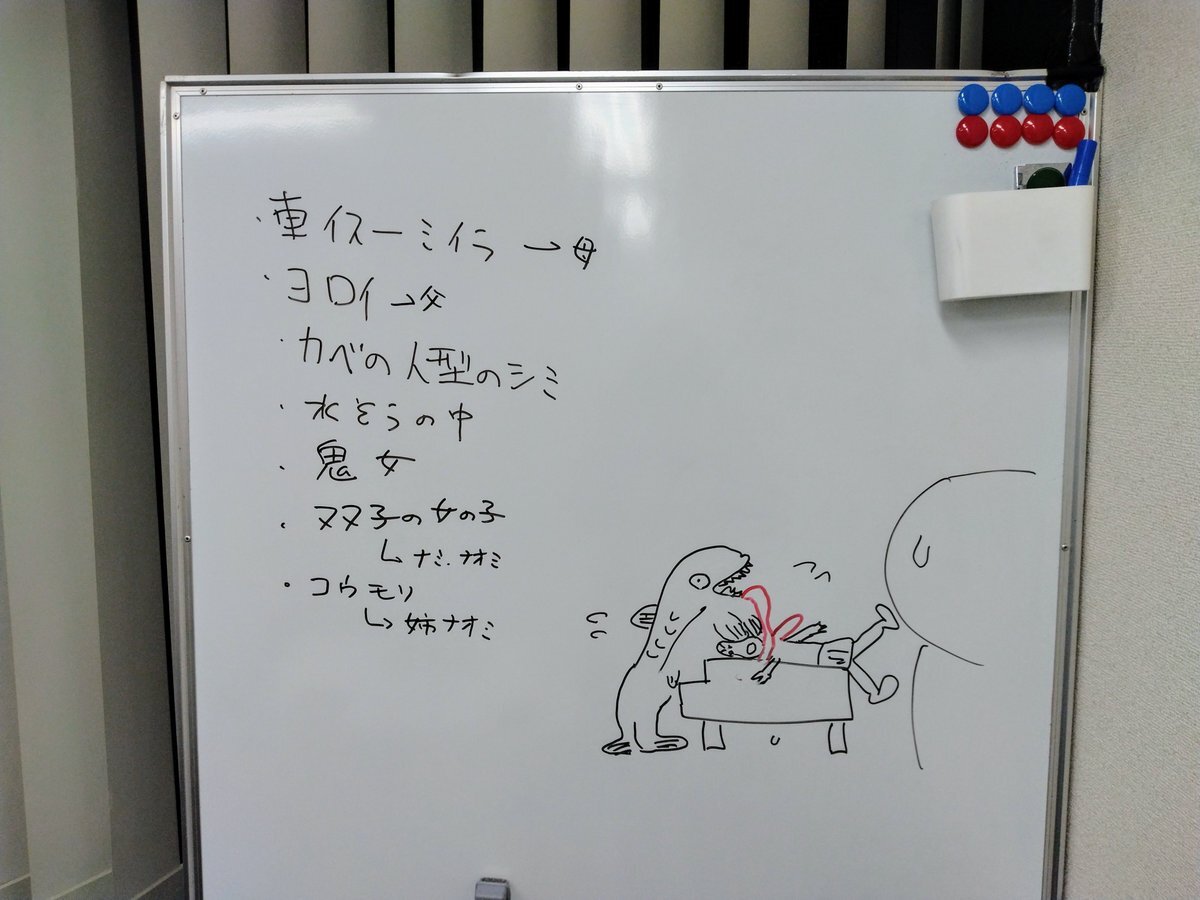 ・車イスーミイラ→母
・ヨロイ→父
・カベの人型のシミ
・水そうの中
・鬼女
・双子の女の子
↳ナミ、ナオミ
・コウモリ
↳姉ナオミ